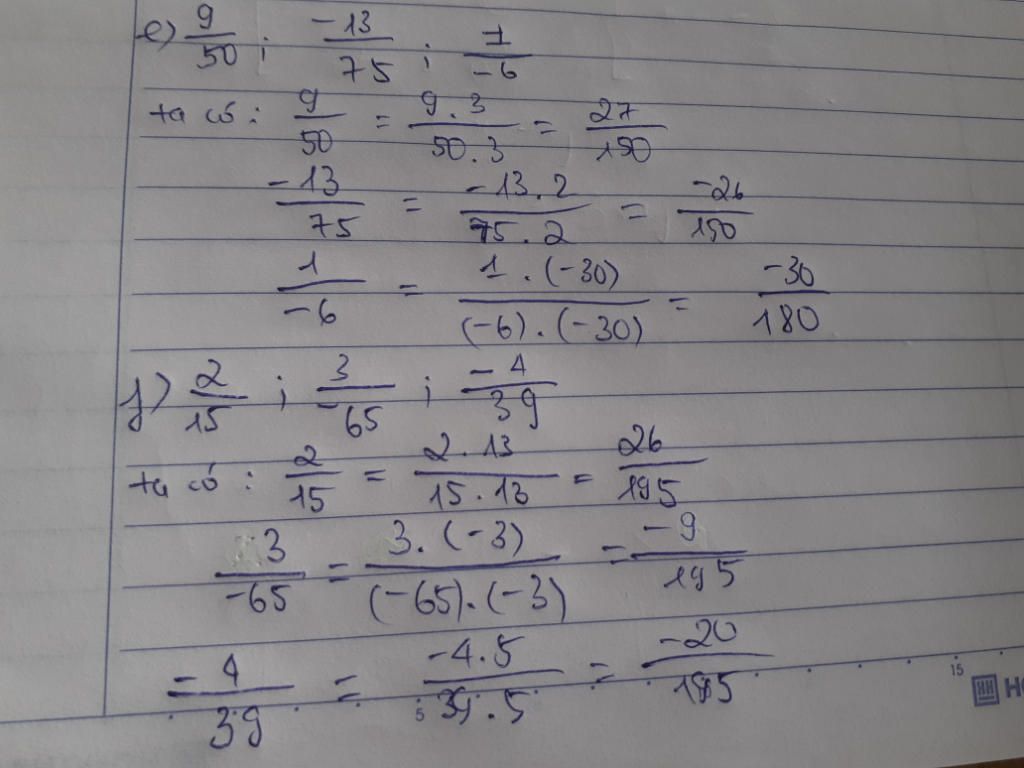 e) 9/50 ; -13/75 ; 1/-6
ta có : 9/50 = 9.3/50.3 = 27/150
-13/75 = -13.2/75.2 = -26/150
1/-6 = 1.(-30)/(-6).(-30) = -30/180
f) 2/15 ; 3/-65 ; -4/39
ta có : 2/15 = 2.13/15.13 = 26/195
3/-65 = 3.(-3)/(-65).(-3) = -9/195
-4/39 = -4.5/39.5 = -20/195
5
15